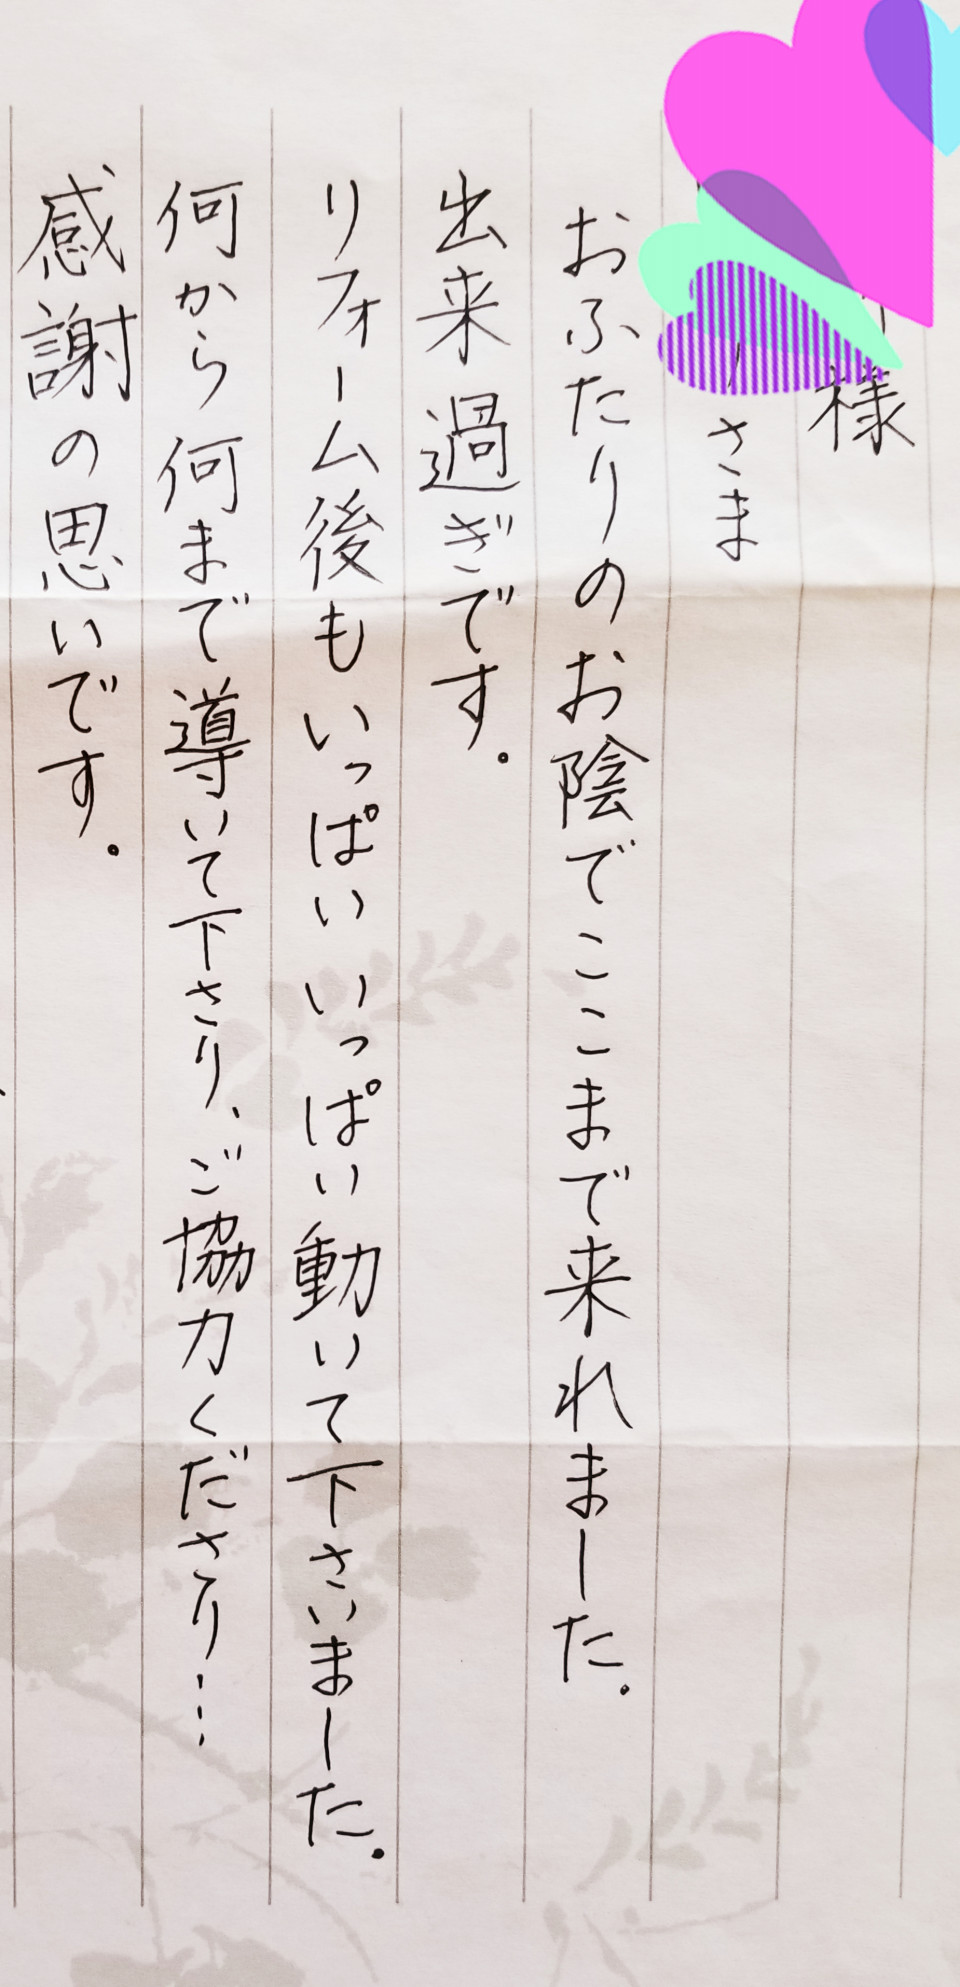 様
さま
おふたりのお陰でここまで来れました。
出来過ぎです。
リフォーム後もいっぱいいっぱい動いて下さいました。
何から何まで導いて下さり、ご協力くださり…
感謝の思いです。